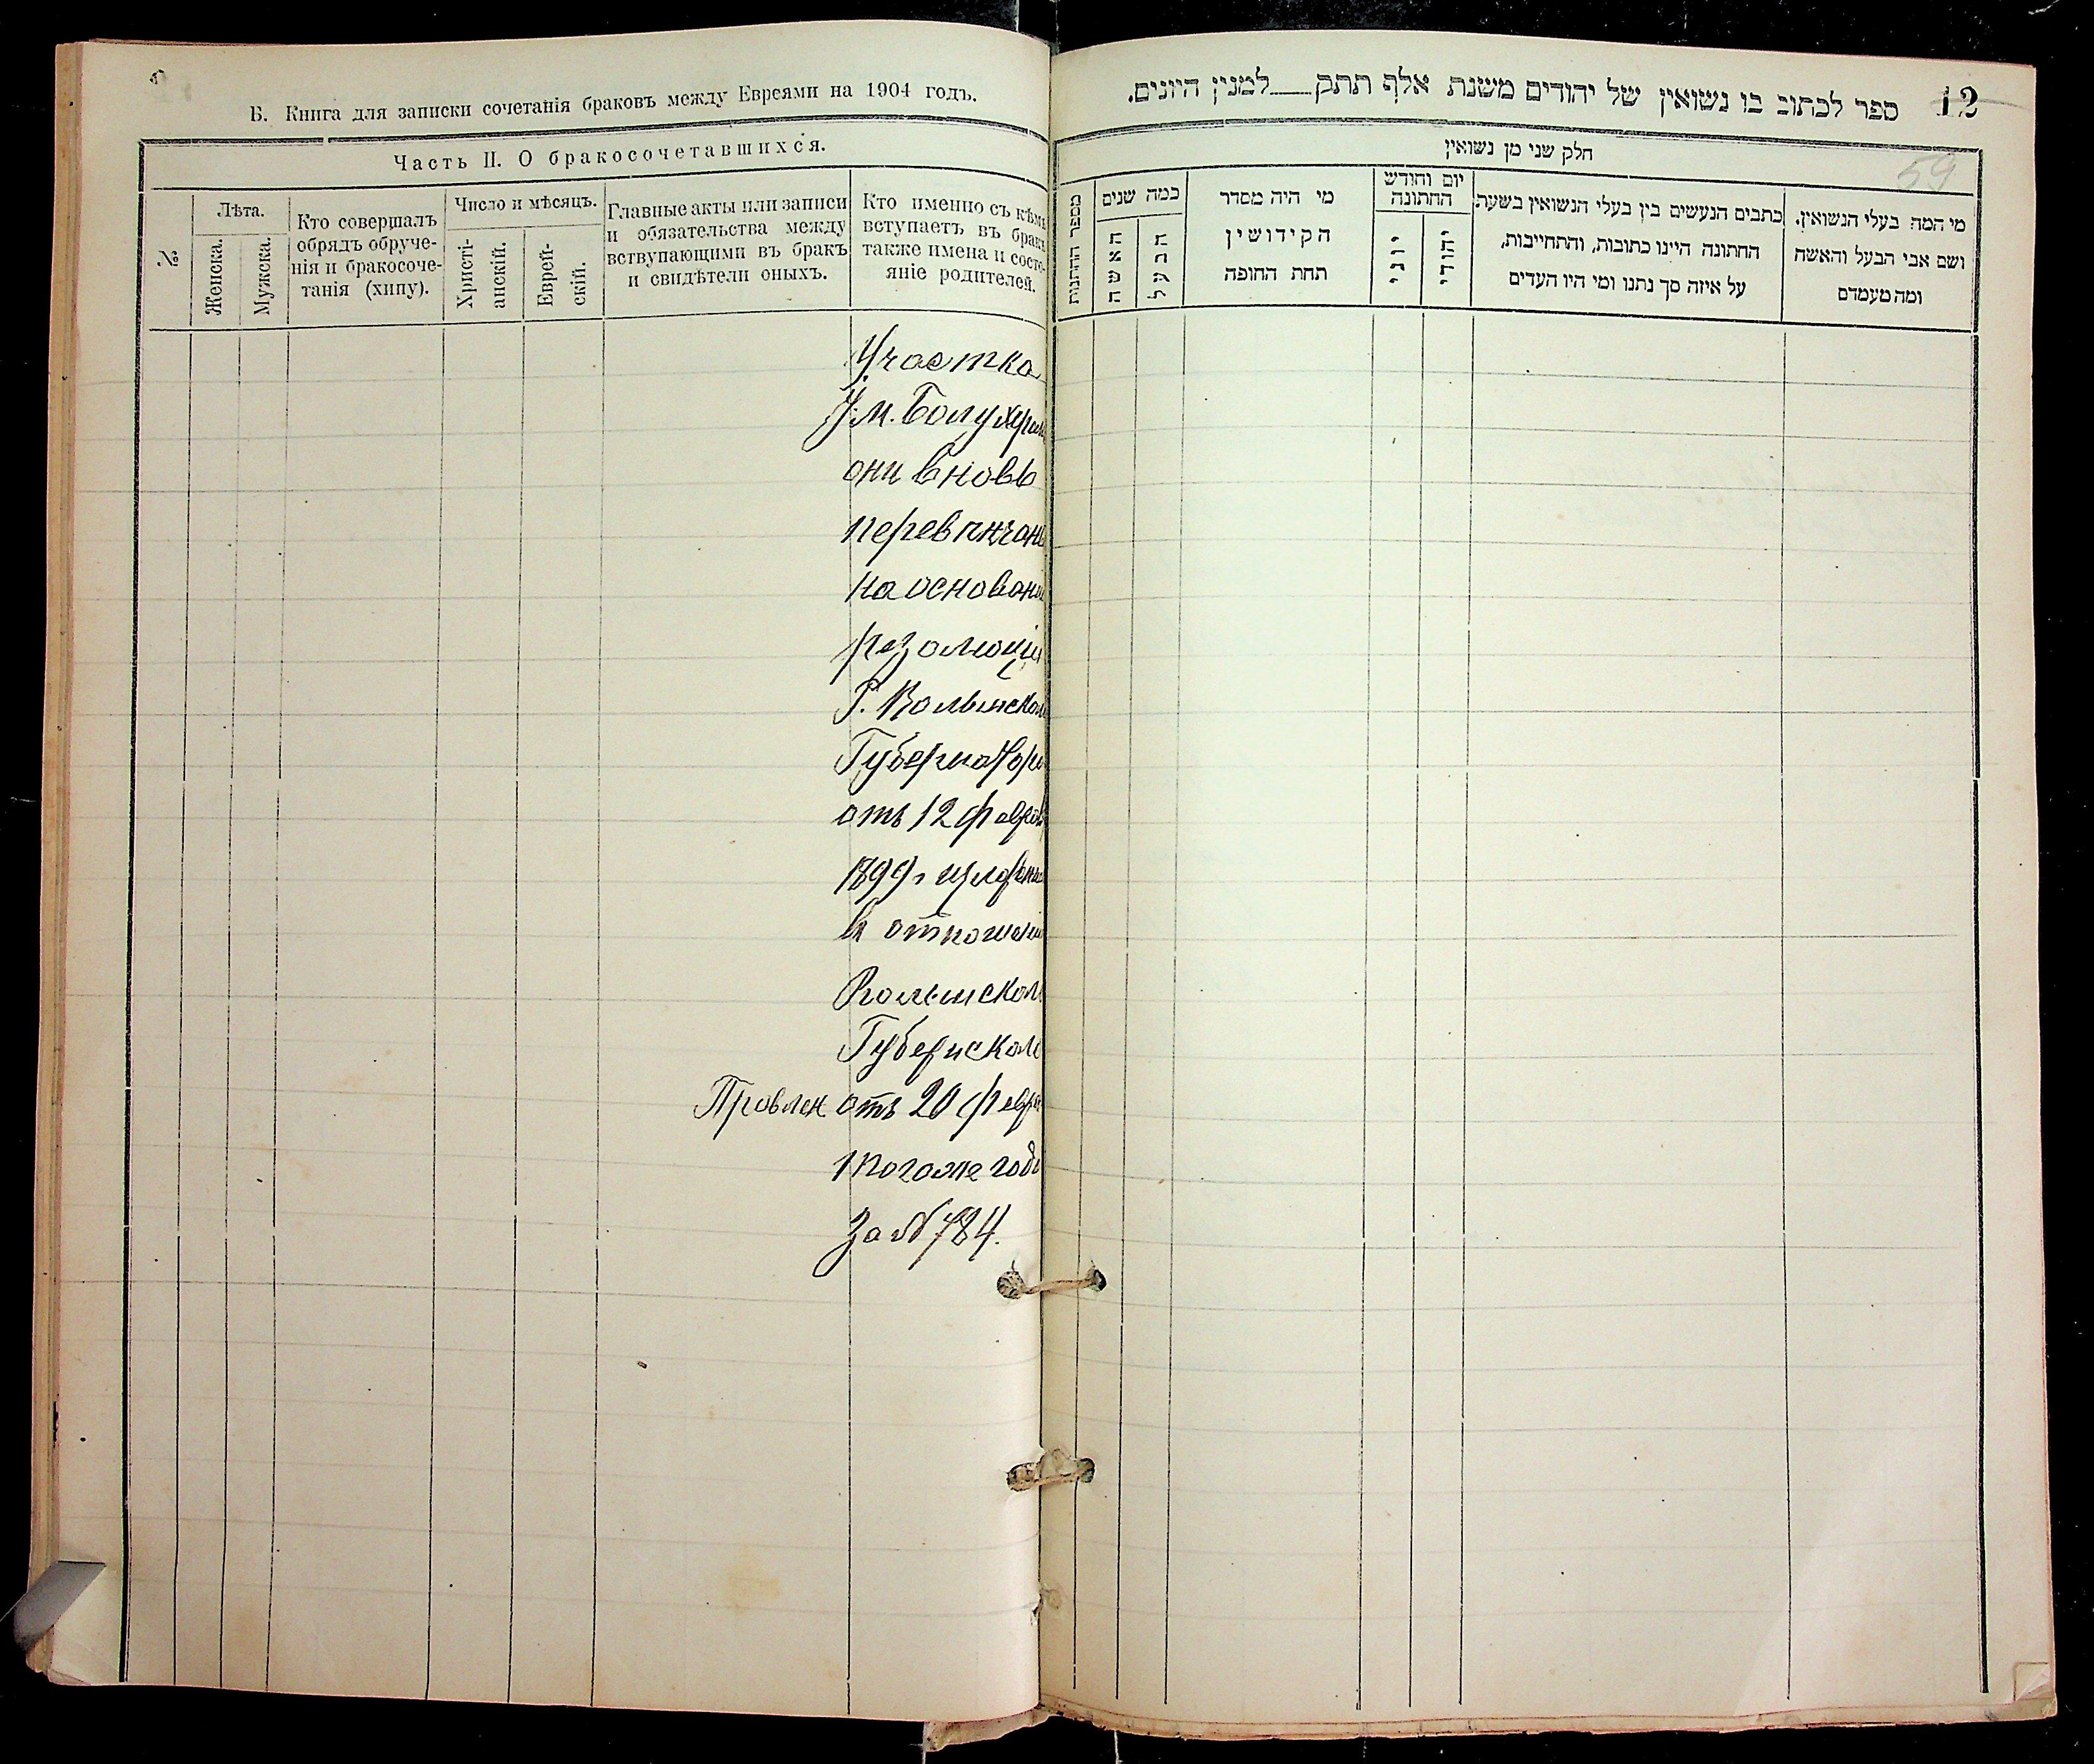 Б. Книга для записки сочетанія браковъ между Евреями на 1904 годъ.
Часть II. О бракосочетавшихся.
№
Лѣта.
Женска.
Мужска.
Кто совершалъ
обрядъ обруче-
нія и бракосоче-
танія (хипу).
Число и мѣсяцъ.
Христі-
анскій.
Еврей-
скій.
Главные акты или записи
и обязательства между
вступающими въ бракъ
и свидѣтели оныхъ.
Кто именно съ кѣмъ
вступаетъ въ бракъ
также имена и состо-
яніе родителей.
Участка
У. м.
они вновь
перевѣнчаны
на основані
резолюціи
Г. Волынскаго
Губернатора
отъ 12 феврал
1899 г изложен
въ отношеніи
Волынскаго
Губернскаго
Правлен отъ 20 февра
того же года
За № 784.
ספר לכתוב בו נשואין של יהודים משנת אלף תתק — למנין היונים. 12
59
חלק שני מן נשואין
מי המה בעלי הנשואין.
ושם אבי הבעל והאשה
ומה מעמדם
כתבים הנעשים בין בעלי הנשואין בשעת
החתונה היינו כתובות, והתחייבות,
על איזה סך נתנו ומי היו העדים
יום וחודש
החתונה
יהודי
יוני
מי היה מסדר
הקידושין
תחת החופה
כמה שנים
הבעל
האשה
מספר החתונות